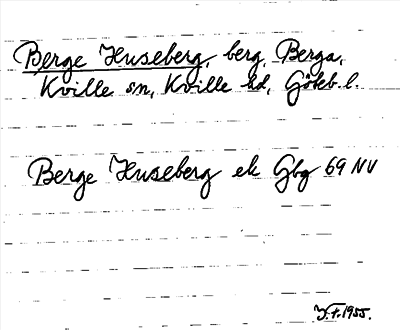 Berge Huseberg, berg, Berga,
Kville sn, Kville hd, Göteb. l.
Berge Huseberg ek Gbg 69 NV
J.F. 1955.